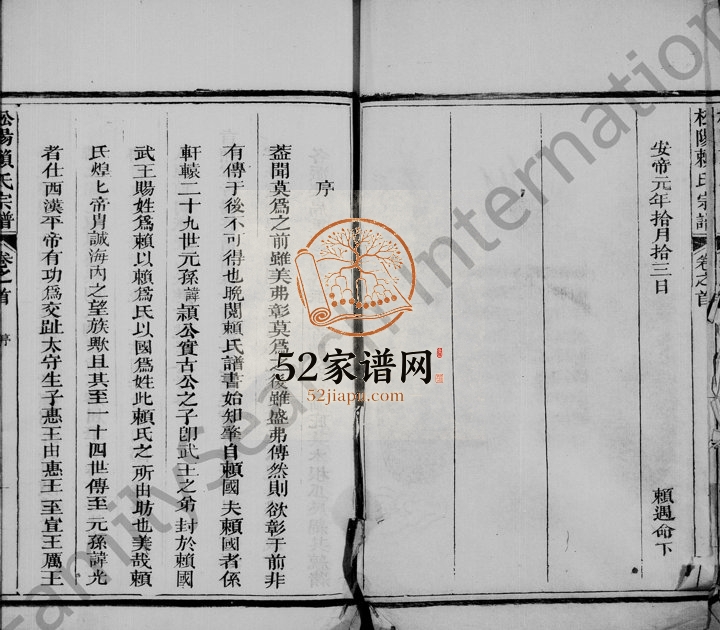 松陽賴氏宗譜
卷之首
安帝元年拾月拾三日
賴遇命下
序
葢聞莫爲之前雖美弗彰莫爲之後雖盛弗傳然則欲彰于前非
有傳于後不可得也晩閱賴氏譜書始知肇自賴國夫賴國者係
軒轅二十九世元孫諱頴公實古公之子卽武王之弟封於賴國
武王賜姓爲賴以賴爲氏以國爲姓此賴氏之所由昉也美哉賴
氏煌匕帝胄誠海內之望族歟且其至一十四世傳至元孫諱光
者仕西漢平帝有功爲交趾太守生子惠王由惠王至宣王厲王
松陽賴氏宗譜
卷之首
序
52家谱网
52jiapu.com
FamilySearch International